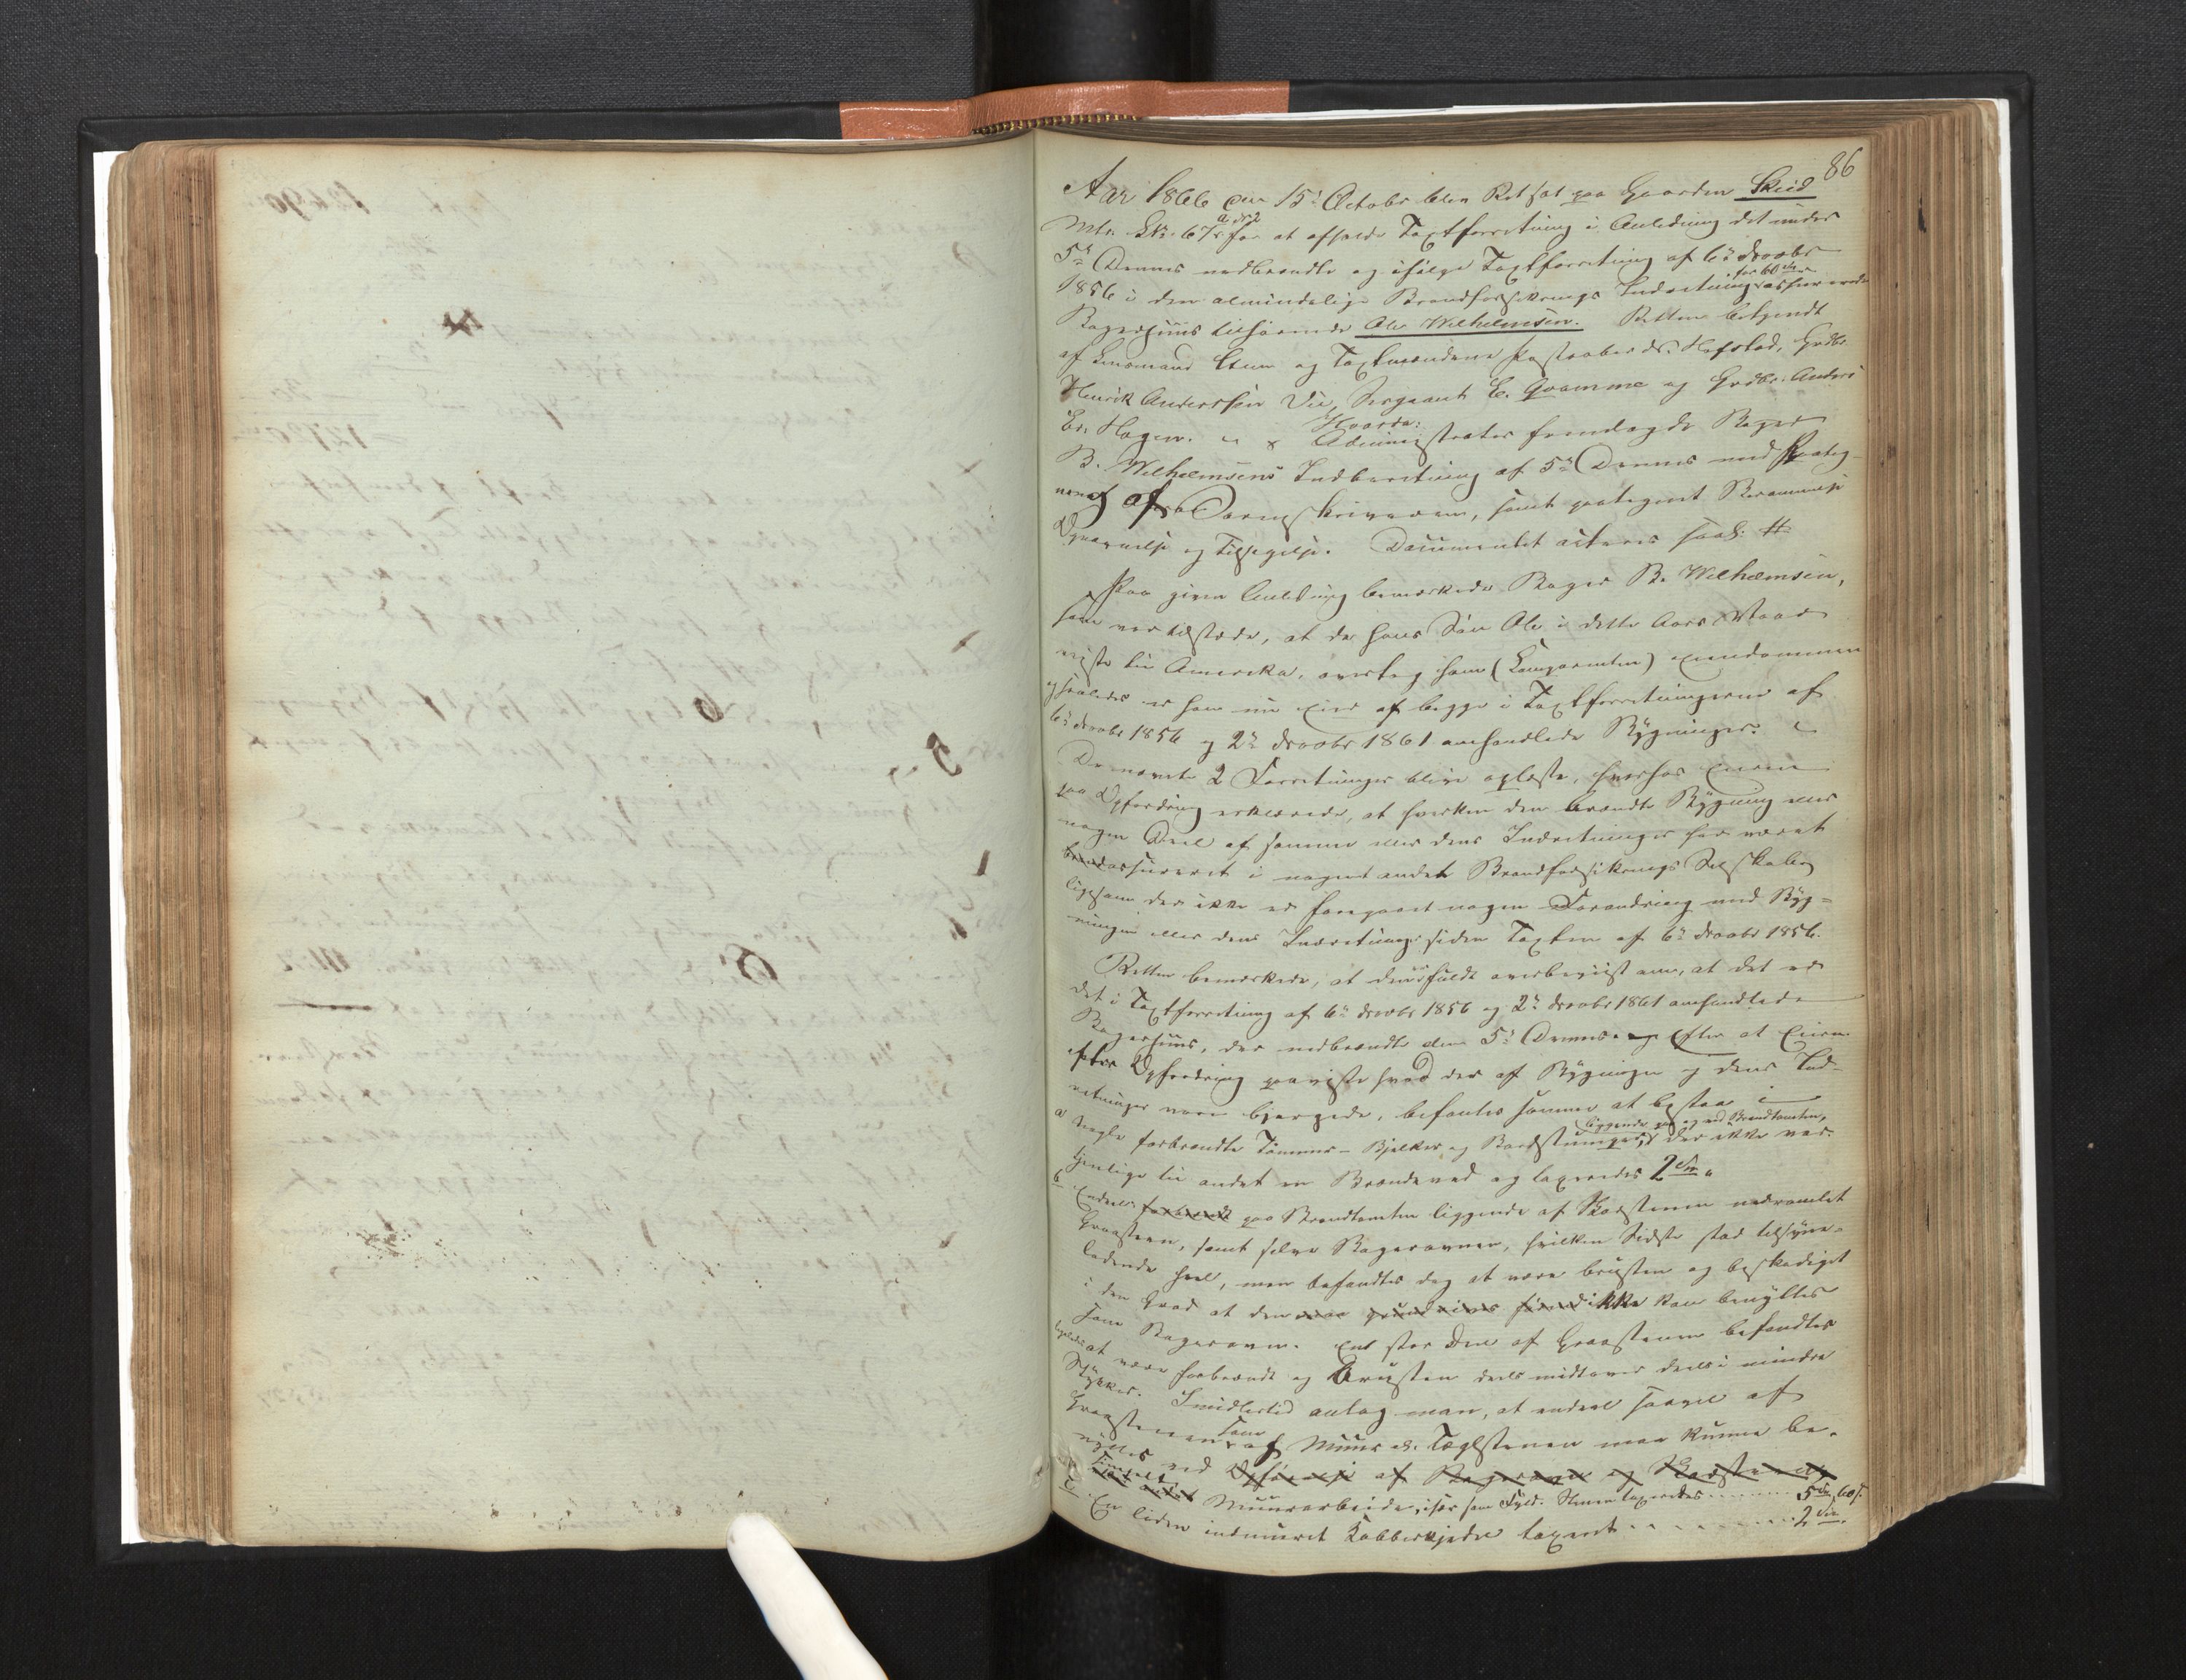 86
Aar 1866 den 15' October blev Ret sat paa Gaarden Skeid
Mtr. No. 67 a, No 2 for at afholde Taxtforretning i Anledning det under
5te Dennes nedbrændte og ifølge Taxtforretning af 6te Novbr
1856 i den almindelige Brandforsikrings Indretning for 60 Sp assurerede
Bagerhuus tilhørende Ole Wilhelmsen. Retten betjendt
af Lensmand Stum og Taxtmændene Hofstad, Grdbr.
Henrik Anderssen Vie, Sergeant E. Qvamme og Grdbr. Anders
Er. Hagen. Hvorda:
Administrator fremlagde Bager
B. Wilhelmsens Indberetning af 5te Dennes med Paateg-
ning af Sorenskriveren, samt paategnet Berammelse
Opnævnelse og Tilsigelse. Documentet acteres saal: #
Paa given Anledning bemærkede Bager B. Wilhelmsen,
som var tilstæde, at da hans Søn Ole i dette Aars Vaar
reiste til Amerika, overtog han (Comparenten) Eiendommen
og saaledes er han nu Eier af begge i Taxtforretningerne af
6te Novbr 1856 og 2den Novbr 1861 omhandlede Bygninger.
De nævnte 2 Forretninger blive oplæste, hvorhos Eieren
paa Opfordring erklærede, at hverken den brændte Bygning eller
nogen Deel af samme eller dens Indretninger har været
brandassureret i noget andet Brandforsikrings Selskab,
ligesom der ikke er foregaaet nogen Forandring med Byg=
ningen eller dens Indretninger siden Taxten af 6te Novbr 1856.
Retten bemærkede, at den er fuldt overbeviist om, at det er
det i Taxtforretning af 6te Novbr 1856 og 2den Novbr 1861 omhandlede
Bagerhuus, der nedbrændte den 5te Dennes. og Efter at Eieren
efter Opfordring paaviste hvad der af Bygningen og dens Ind-
retninger vare bjergede, befantes samme at bestaa i
a Nogle forbrændte Tømmer- Bjelker og Bordstumper, liggende paa og ved Brandtomten, der ikke var
tjenlige til andet en Brændeved og taxeredes 2 Sp.
b Endeel forbrændt paa Brandtomten liggende af Skorstenen nedramlet
Graasteen, samt selve Bagerovnen, hvilken Sidste stod tilsyne-
ladende heel, men befandtes dog at være brusten og beskadiget
i den Grad at den ikke kan benyttes
som Bagerovn. En stor Deel af Graastenen befandtes
ligeledes at være forbrændt og brusten deels midtover deels i mindre
Stykker. Imidlertid antog man, at endeel saavel af
Graastenen som af Muur el. Teglstenen maa kunne be-
nyttes ved Opførelse af Bagerovn og Skorsteen
simpelt Muurarbeide, især som Fyld. Stenen taxeredes ........ 5 Sp 60 s.
c En liden indmuret Kobberkjedel taxeret ........ 2 Sp.